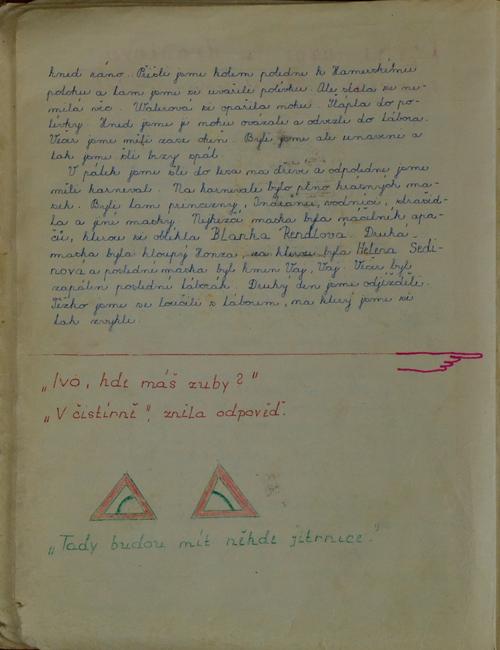 hned ráno. Přišli jsme kolem poledne k Hamerskému
potoku a tam jsme si uvařili polívku. Ale stala se ne-
milá věc. Walerová si opařila nohu. Šlápla do po-
lívky. Hned jsme jí nohu ovázali a odvezli do tábora.
Večer jsme měli zase oheň. Byli jsme ale unaveni a
tak jsme šli brzy spát.
V pátek jsme šli do lesa na dříví a odpoledne jsme
měli karneval. Na karnevale bylo plno krásných ma-
sek. Byli tam princezny, Indiáni, vodníci, strašid-
la a jiné masky. Nejhezčí maska byla náčelník apa-
čů, kterou si oblékla Blanka Rendlová. Druhá
maska byla hloupý Honza, za kterou byla Helena Sedi-
nova a poslední maska byl kmen Uaj, Uaj. Večer byl
zapálen poslední táborák. Druhý den jsme odjížděli.
Těžko jsme se loučili s táborem, na který jsme si
tak zvykli.
„Ivo, hde máš zuby?"
„V čistírně", zněla odpověď.
„Tady budou mít někde jitrnice."